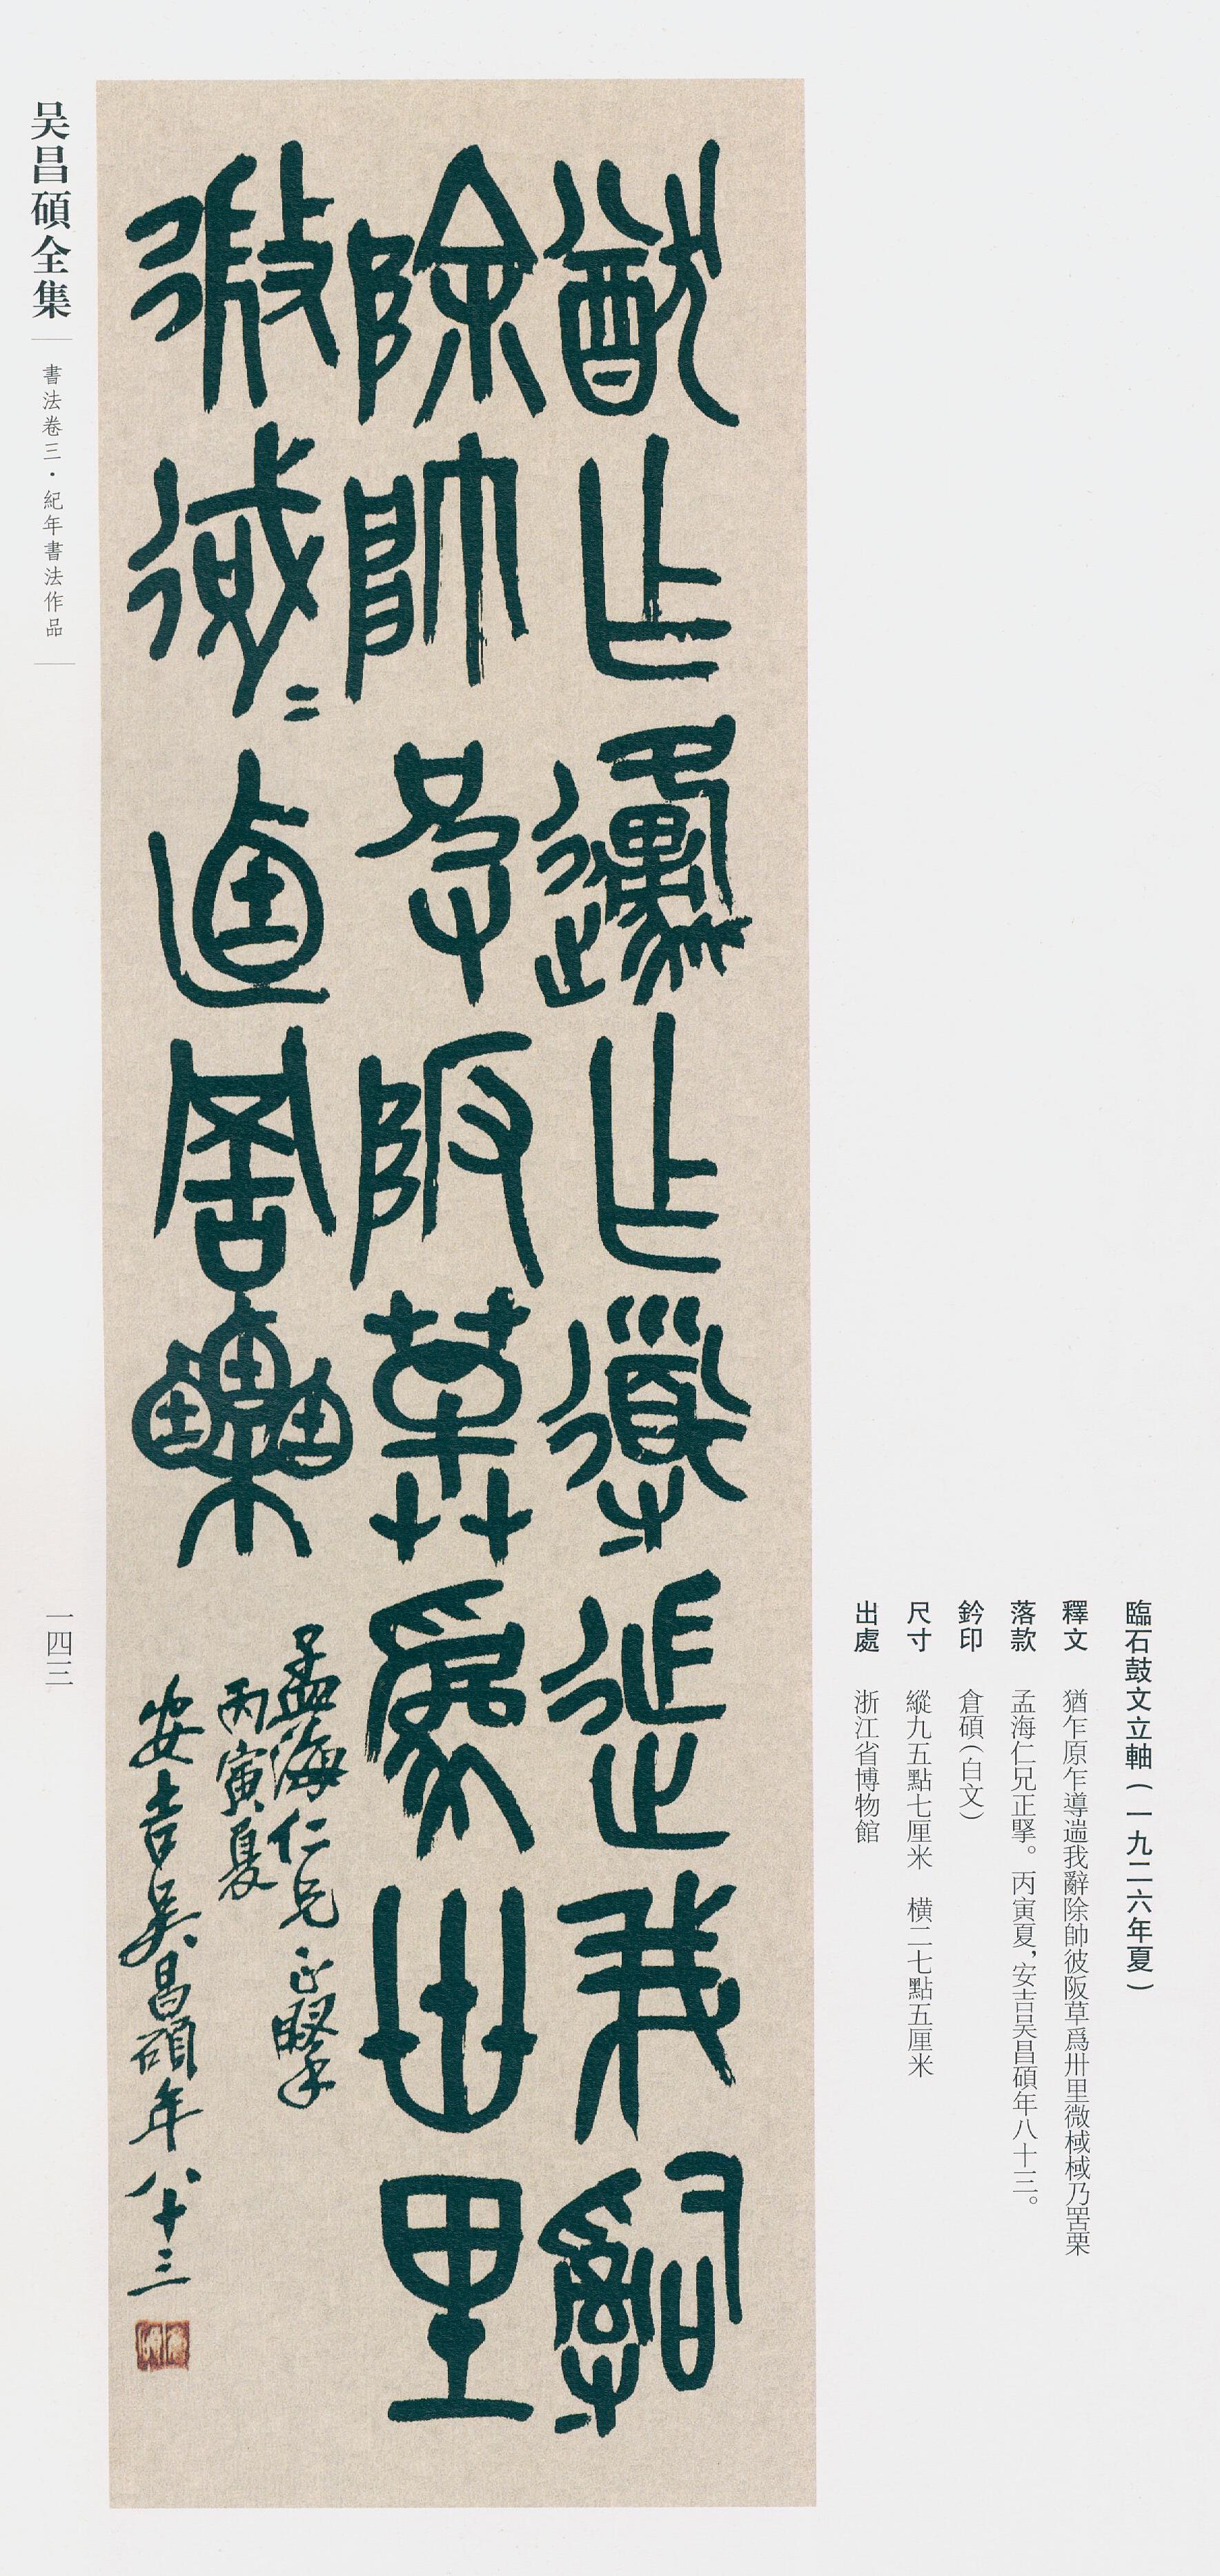 臨石鼓文立軸（一九二六年夏）
釋文 猶乍原乍導遄我辭除帥彼阪草爲卅里微棫棫乃罟栗
落款 孟海仁兄正掔。丙寅夏，安吉吴昌碩年八十三。
鈐印 倉碩（白文）
尺寸 縱九五點七厘米 橫二七點五厘米
出處 浙江省博物館
猷乍邍乍導遄我辭
除帥彼阪草爲卅里
微棫〻逌罟栗
孟海仁兄正掔
丙寅夏
安吉吳昌碩年八十三
倉碩
吴昌碩全集
書法卷三·紀年書法作品
一四三